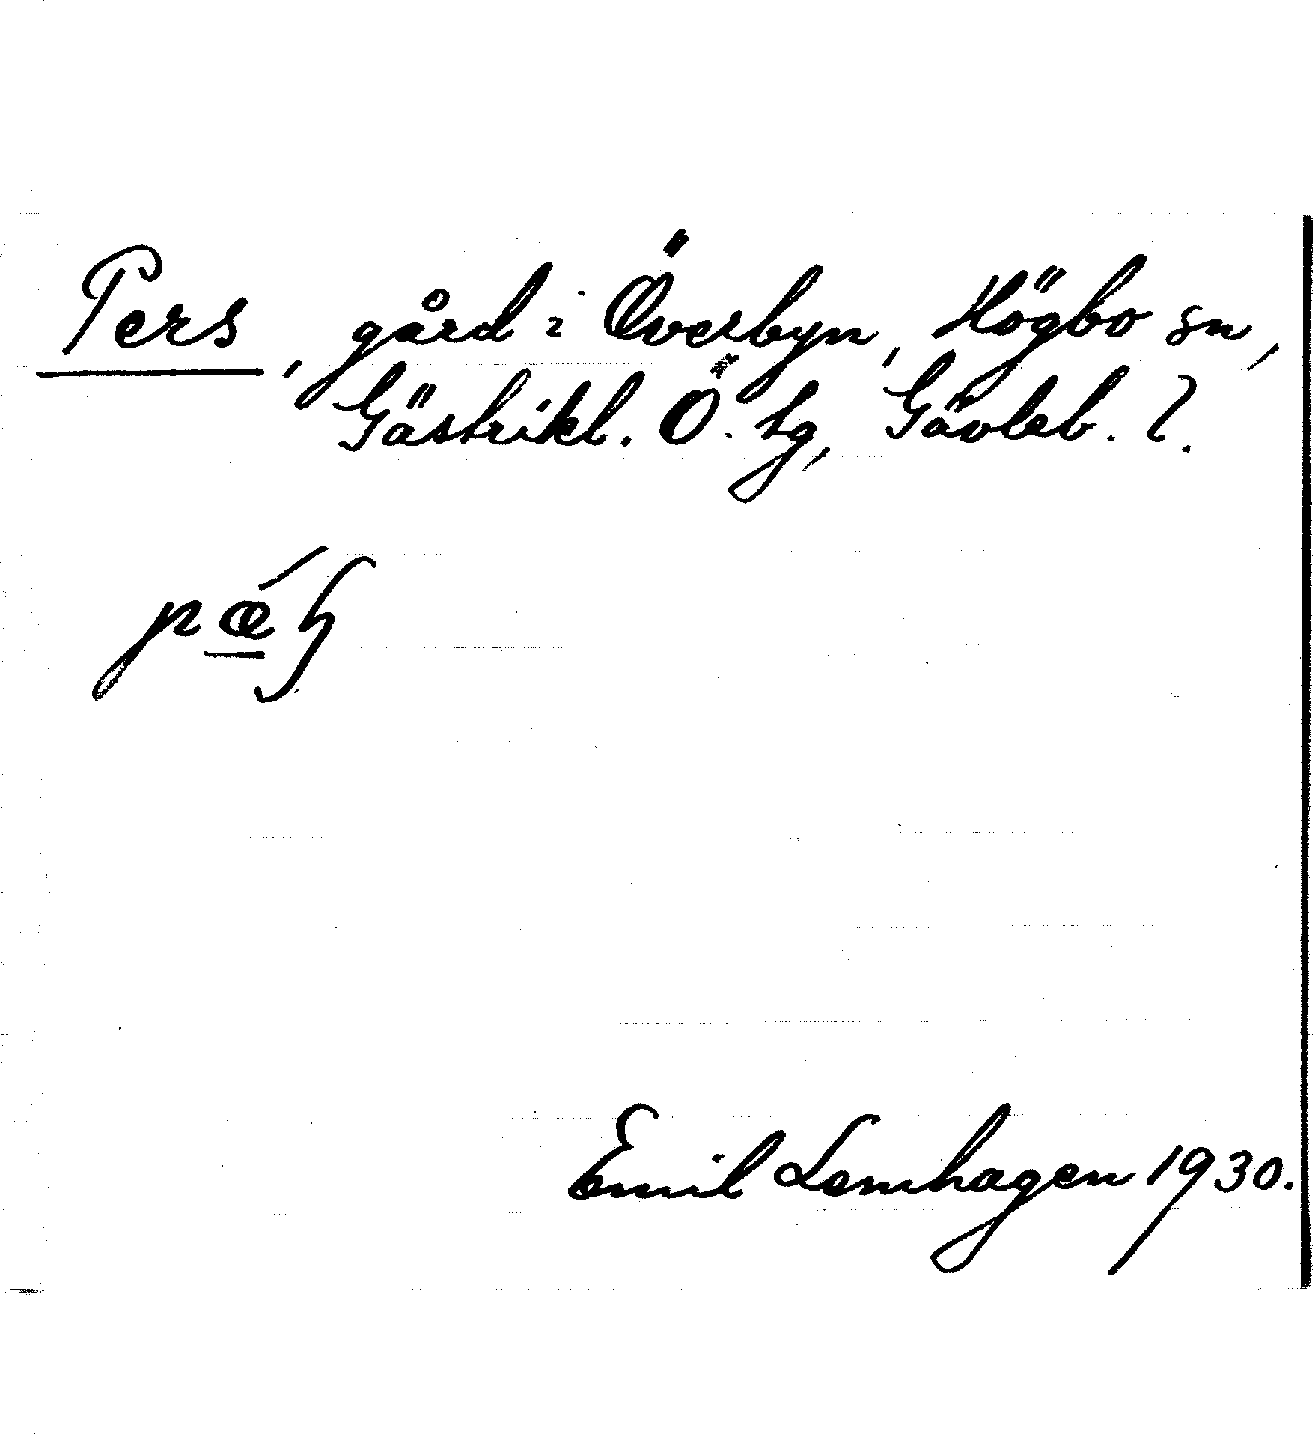 Pers, gård i Överbyn, Högbo sn,
Gästrikl. Ö. tg, Gävleb. l.
Emil Lemhagen 1930.